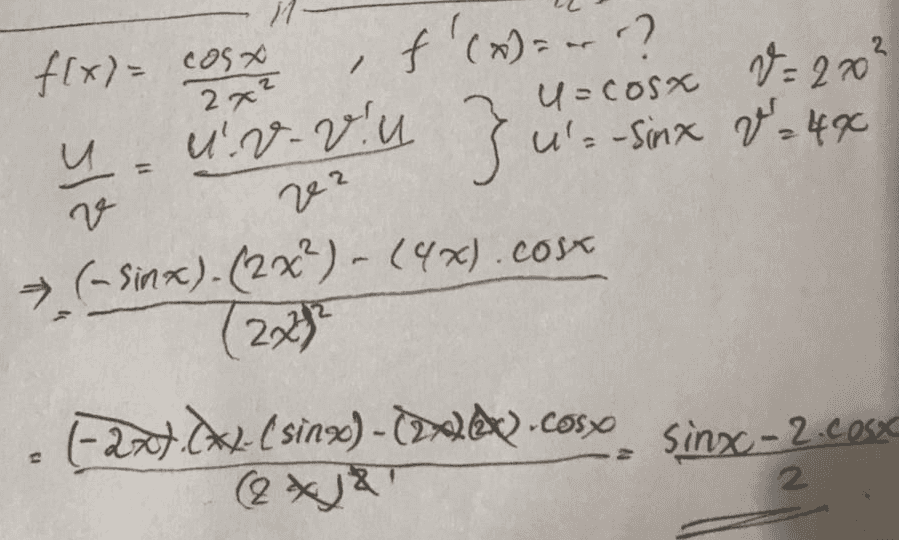 f(x) = cosx / 2x² , f'(x) = ...?
u/v = u'.v - v'.u / v² } u = cosx v = 2x²
u' = -sinx v' = 4x
⇒ = (-sinx).(2x²) - (4x).cosx / (2x²)²
= (-2x).(x).(sinx) - (2x)(2x).cosx / (2x)² = sinx - 2.cosx / 2